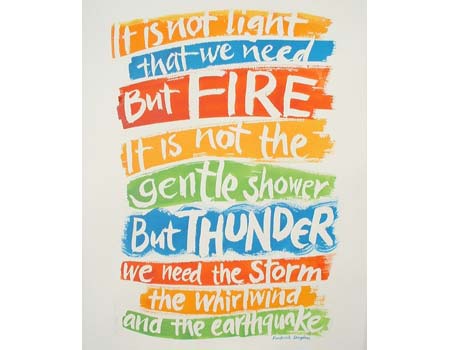 It is not light
that we need
But FIRE
It is not the
gentle shower
But THUNDER
we need the Storm
the whirlwind
and the earthquake
Frederick Douglass